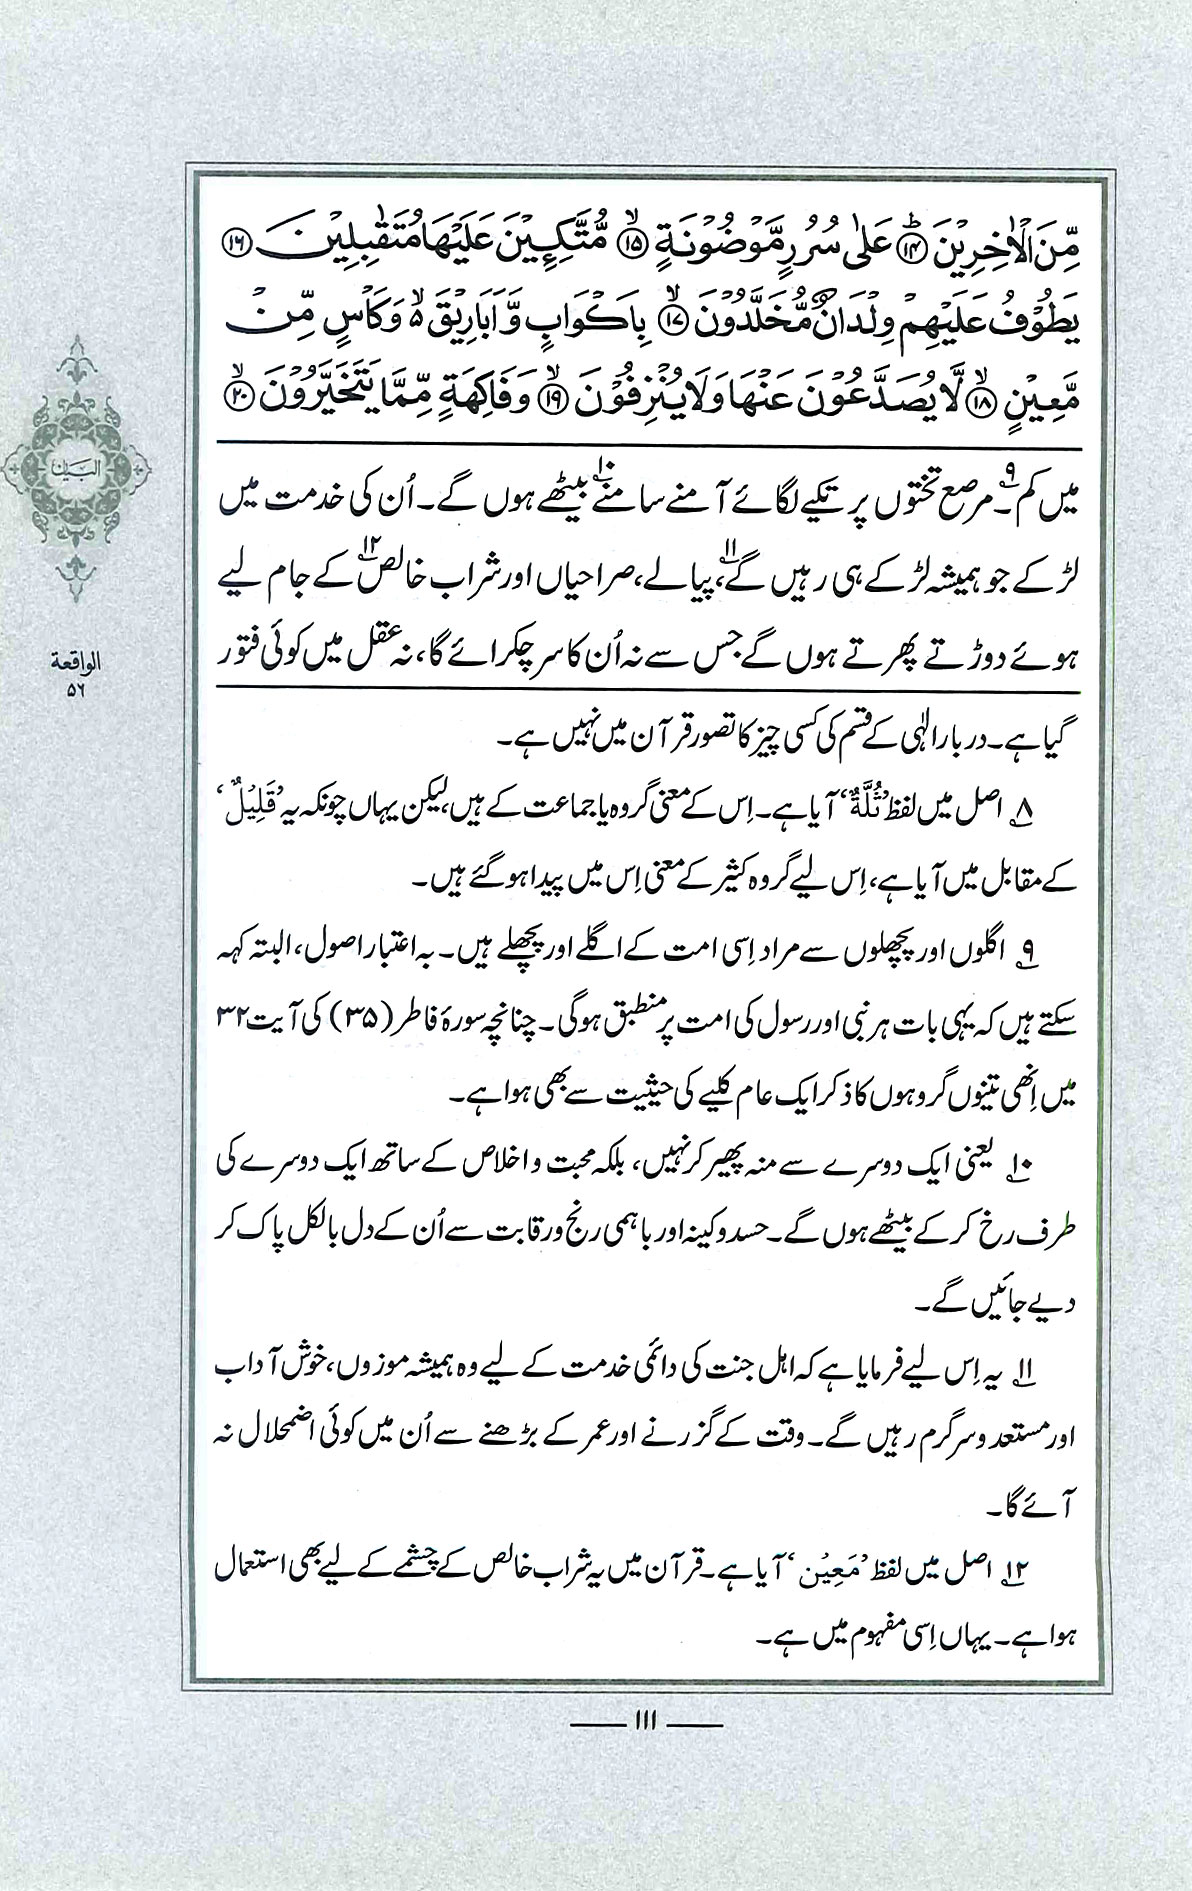 مِّنَ الْاٰخِرِيْنَ ﴿۱۴﴾ عَلٰى سُرُرٍ مَّوْضُوْنَةٍ ﴿۱۵﴾ مُّتَّكِـِٕيْنَ عَلَيْهَا مُتَقٰبِلِيْنَ ﴿۱۶﴾
يَطُوْفُ عَلَيْهِمْ وِلْدَانٌ مُّخَلَّدُوْنَ ﴿۱۷﴾ بِاَكْوَابٍ وَّاَبَارِيْقَ ۵ وَكَاْسٍ مِّنْ
مَّعِيْنٍ ﴿۱۸﴾ لَّا يُصَدَّعُوْنَ عَنْهَا وَلَا يُنْزِفُوْنَ ﴿۱۹﴾ وَفَاكِهَةٍ مِّمَّا يَتَخَيَّرُوْنَ ﴿۲۰﴾
میں کم۹۔ مرصع تختوں پر تکیے لگائے آمنے سامنے۱۰ بیٹھے ہوں گے۔ اُن کی خدمت میں
لڑکے جو ہمیشہ لڑکے ہی رہیں گے۱۱، پیالے، صراحیاں اور شراب خالص۱۲ کے جام لیے
ہوئے دوڑتے پھرتے ہوں گے جس سے نہ اُن کا سر چکرائے گا، نہ عقل میں کوئی فتور
گیا ہے۔ دربار الٰہی کے قسم کی کسی چیز کا تصور قرآن میں نہیں ہے۔
۸ اصل میں لفظ ’ثُلَّةٌ‘ آیا ہے۔ اِس کے معنی گروہ یا جماعت کے ہیں، لیکن یہاں چونکہ یہ ’قَلِيْلٌ‘
کے مقابل میں آیا ہے، اِس لیے گروہ کثیر کے معنی اِس میں پیدا ہو گئے ہیں۔
۹ اگلوں اور پچھلوں سے مراد اِسی امت کے اگلے اور پچھلے ہیں۔ بہ اعتبار اصول، البتہ کہہ
سکتے ہیں کہ یہی بات ہر نبی اور رسول کی امت پر منطبق ہوگی۔ چنانچہ سورۂ فاطر (۳۵) کی آیت ۳۲
میں اِنھی تینوں گروہوں کا ذکر ایک عام کلیے کی حیثیت سے بھی ہوا ہے۔
۱۰ یعنی ایک دوسرے سے منہ پھیر کر نہیں، بلکہ محبت و اخلاص کے ساتھ ایک دوسرے کی
طرف رخ کر کے بیٹھے ہوں گے۔ حسد و کینہ اور باہمی رنج و رقابت سے اُن کے دل بالکل پاک کر
دیے جائیں گے۔
۱۱ یہ اِس لیے فرمایا ہے کہ اہل جنت کی دائمی خدمت کے لیے وہ ہمیشہ موزوں، خوش آداب
اور مستعد و سرگرم رہیں گے۔ وقت کے گزرنے اور عمر کے بڑھنے سے اُن میں کوئی اضمحلال نہ
آئے گا۔
۱۲ اصل میں لفظ ’مَعِيْن‘ آیا ہے۔ قرآن میں یہ شراب خالص کے چشمے کے لیے بھی استعمال
ہوا ہے۔ یہاں اِسی مفہوم میں ہے۔
البیان
الواقعة
۵۶
۱۱۱